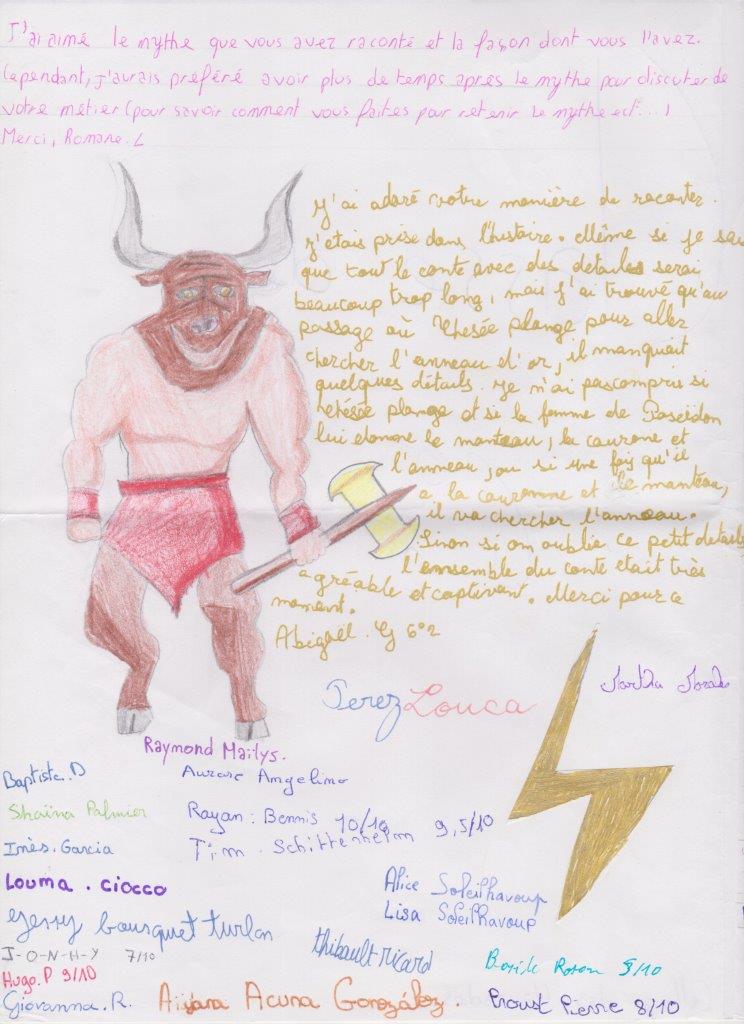 J'ai aimé le mythe que vous avez raconté et la façon dont vous l'avez.
Cependant, j'aurais préféré avoir plus de temps après le mythe pour discuter de
votre métier (pour savoir comment vous faites pour retenir le mythe ect...)
Merci, Romane.L
J'ai adoré votre manière de raconter.
j'étais prise dans l'histoire. Même si je sai
que tout le conte avec des details serai
beaucoup trop long, mais j'ai trouvé qu'au
passage où Thesée plonge pour aller
chercher l'anneau d'or, il manquait
quelques détails. Je n'ai pas compris si
thésée plonge et si la femme de Poseidon
lui donne le manteau, la couronne et
l'anneau, ou si une fois qu'il
a la couronne et le manteau,
il va chercher l'anneau.
Sinon si on oublie ce petit details
l'ensemble du conte était très
agréable et captivant. Merci pour ce
moment.
Abigaël. G 6°2
Jerez Louca
Raymond Maïlys.
Baptiste.D
Aurore Angelino
Shaïna Palmier
Rayan: Bennis 10/10
Tim. Schittenhelm 9,5/10
Inès. Garcia
Louma. ciocco
Alice Soleilhavoup
Lisa Soleilhavoup
Jenny bousquet turlan
J-O-N-H-Y 7/10
thibault ricard
Hugo.P 9/10
Giovanna.R.
Acuna González.
Proust Pierre 8/10